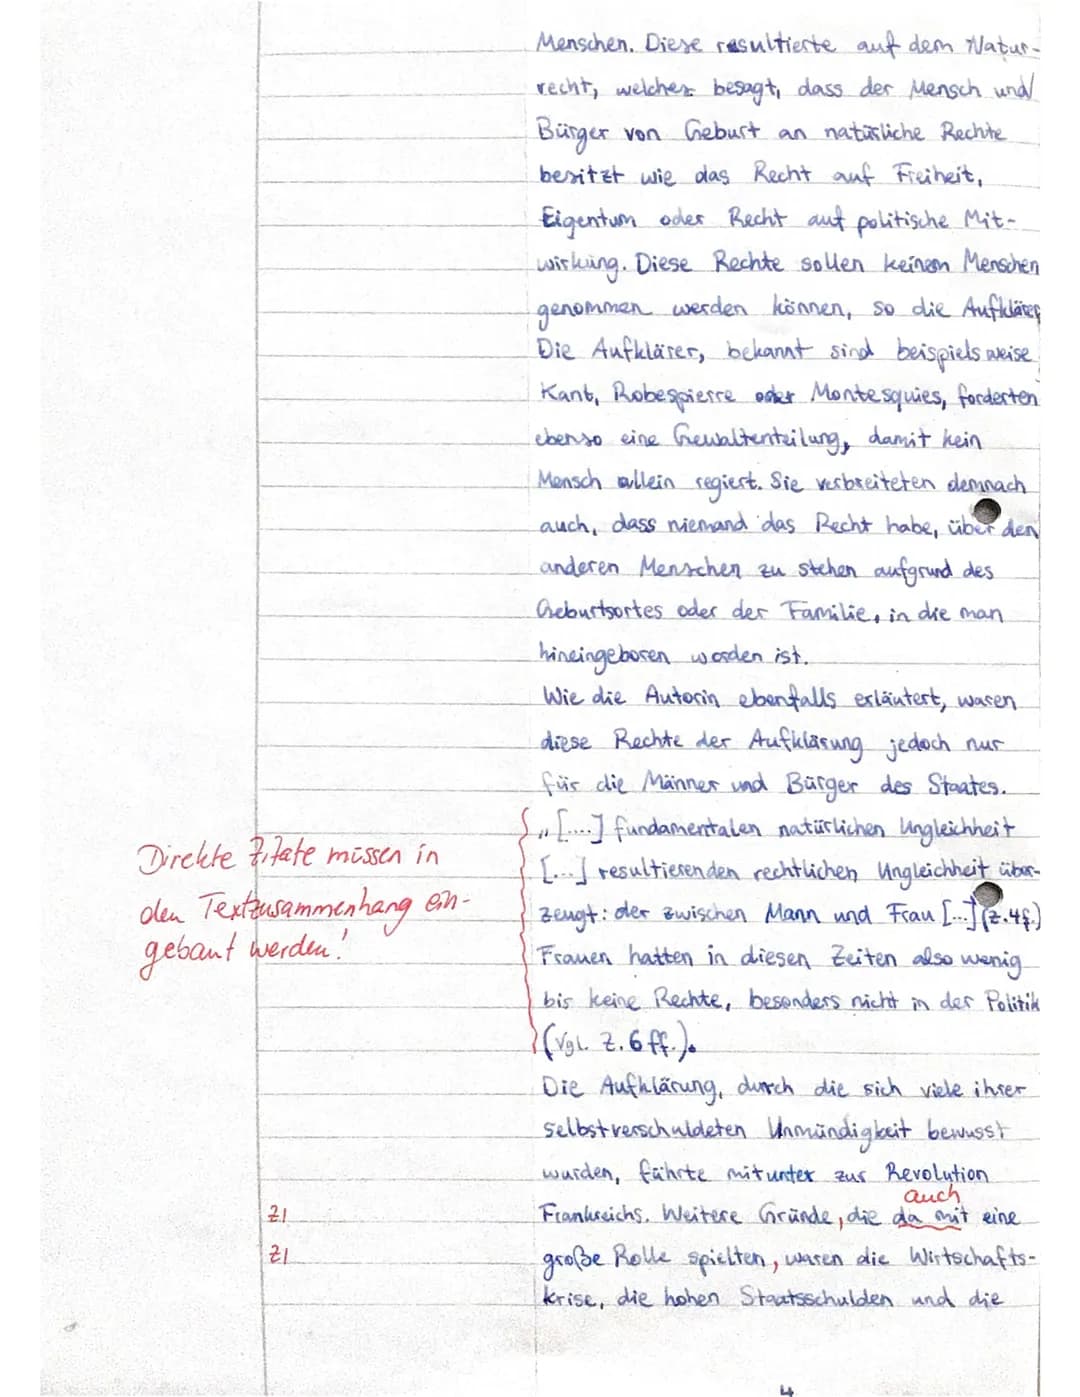 Menschen. Diese resultierte auf dem Natur-
recht, welches besagt, dass der Mensch und
Bürger von Geburt an natürliche Rechte
besitzt wie das Recht auf Freiheit,
Eigentum oder Recht auf politische Mit-
wirkung. Diese Rechte sollen keinem Menschen
genommen werden können, so die Aufklärer
Die Aufklärer, bekannt sind beispielsweise
Kant, Robespierre oder Montesquies, forderten
ebenso eine Gewaltenteilung, damit kein
Mensch allein regiert. Sie verbreiteten demnach
auch, dass niemand das Recht habe, über den
anderen Menschen zu stehen aufgrund des
Geburtsortes oder der Familie, in die man
hineingeboren worden ist.
Wie die Autorin ebenfalls erläutert, waren
diese Rechte der Aufklärung jedoch nur
für die Männer und Bürger des Staates.
„[....] fundamentalen natürlichen Ungleichheit
[...] resultierenden rechtlichen Ungleichheit über-
zeugt: der zwischen Mann und Frau [...]" (Z.4f.)
Frauen hatten in diesen Zeiten also wenig
bis keine Rechte, besonders nicht in der Politik
(vgl. Z. 6 ff.).
Direkte Zitate müssen in
den Textzusammenhang ein-
gebaut werden!
Die Aufklärung, durch die sich viele ihrer
selbstverschuldeten Unmündigkeit bewusst
wurden, führte mitunter zur Revolution
auch
ZI Frankreichs. Weitere Gründe, die da mit eine
ZI große Rolle spielten, waren die Wirtschafts-
krise, die hohen Staatsschulden und die
4